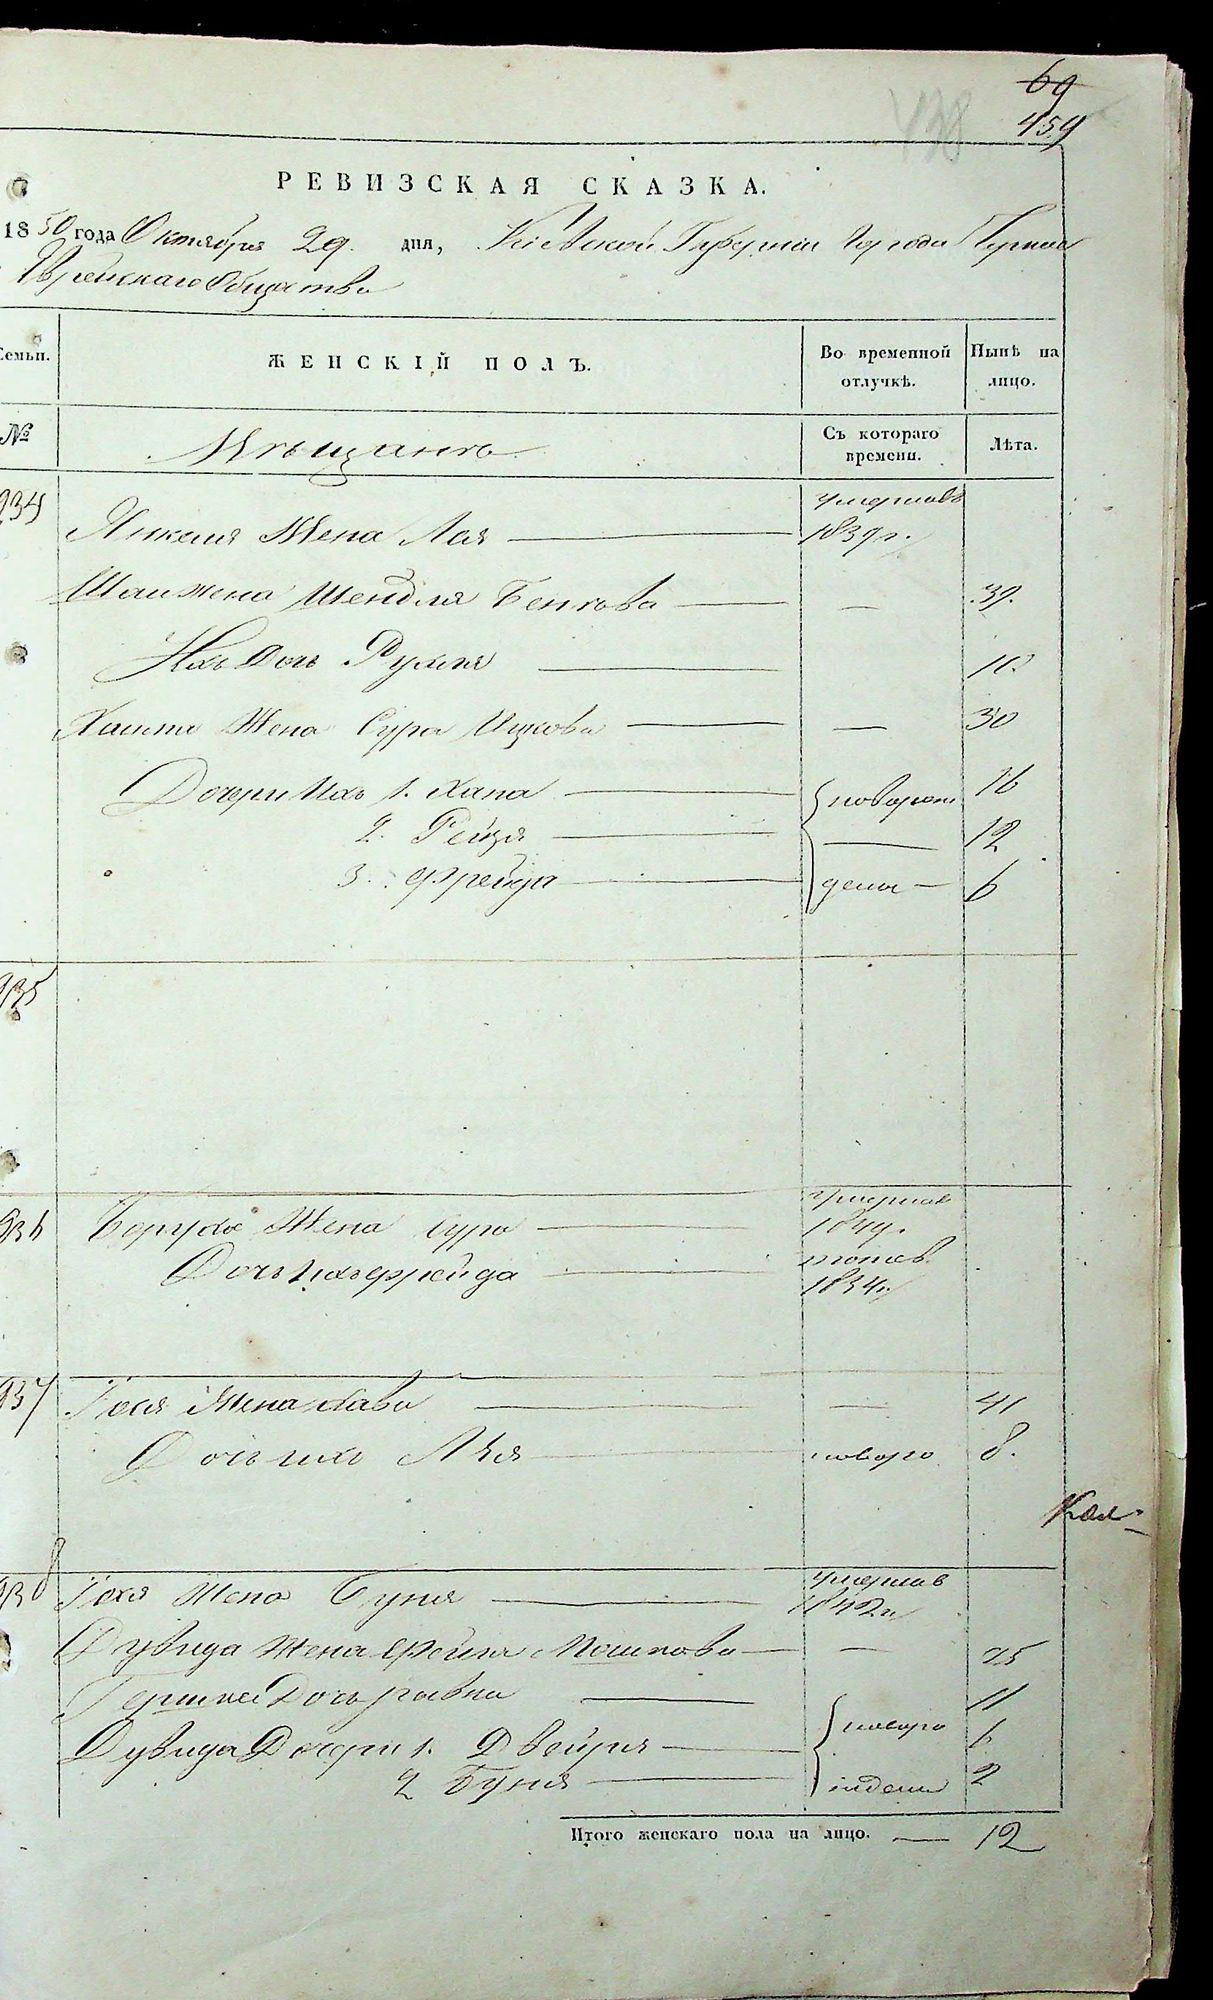 69
459
438
РЕВИЗСКАЯ СКАЗКА.
1850 года Октября 29. дня, Кіевской Губерніи города
Еврейскаго Общества
Семьи. ЖЕНСКІЙ ПОЛЪ. Во временной отлучкѣ. Нынѣ на лицо.
№ Мѣщанъ Съ котораго времени. Лѣта.
934 Янкеля Жена Лая — умершая 1839 г.
Шаи жена Шендля Беркова — — 39.
Ихъ Дочь Рухля — 11.
Хаима Жена Сура Ицкова — — 30
Дочери Ихъ 1. Хана — новорож 16
2. Рейзя — — 12
3. Фрейда — дена — 6
935
936 Боруха Жена Сура — умершая 1849.
Дочь ихъ Фрейда — тожев. 1834
937 Жена Хава — — 41
Дочь ихъ Лея — новоро 8.
Кол
938 Жена Буня — умершая 1842
Дувида Жена Фейга Мошкова — — 25
Гершка Дочь — 11
Дувида Дочери 1. Двейря — новоро 6
2 Буня — 2
Итого женскаго пола на лицо. — 12